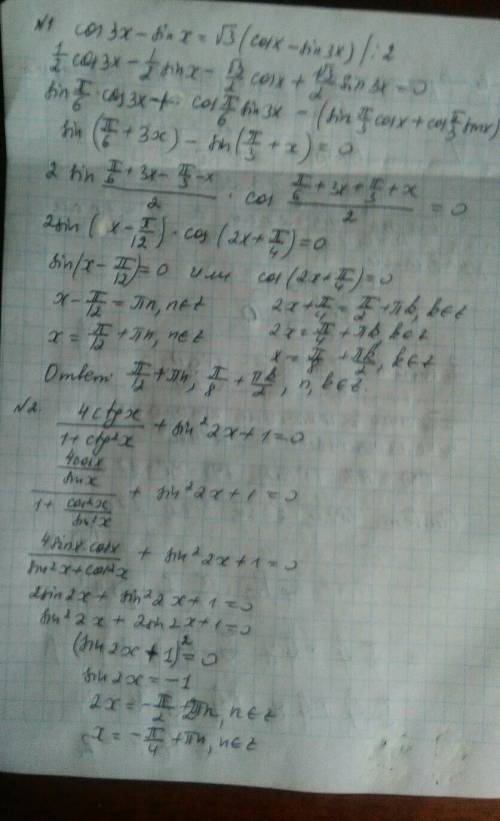 №1 cos 3x - sin x = √3 (cos x - sin 3x) | : 2
1/2 cos 3x - 1/2 sin x - √3/2 cos x + √3/2 sin 3x = 0
sin π/6 · cos 3x + cos π/6 sin 3x - (sin π/3 cos x + cos π/3 sin x)
sin (π/6 + 3x) - sin (π/3 + x) = 0
2 sin (π/6 + 3x - π/3 - x)/2 · cos (π/6 + 3x + π/3 + x)/2 = 0
2 sin (x - π/12) · cos (2x + π/4) = 0
sin (x - π/12) = 0 или cos (2x + π/4) = 0
x - π/12 = πn, n∈z 2x + π/4 = π/2 + πk, k∈z
x = π/12 + πn, n∈z 2x = π/4 + πk, k∈z
x = π/8 + πk/2, k∈z
Ответ: π/12 + πn; π/8 + πk/2, n, k∈z.
№2.
4ctgx/(1 + ctg²x) + sin² 2x + 1 = 0
(4cosx/sinx)/(1 + cos²x/sin²x) + sin² 2x + 1 = 0
4sinx cosx/(sin²x + cos²x) + sin² 2x + 1 = 0
2sin 2x + sin² 2x + 1 = 0
sin² 2x + 2sin 2x + 1 = 0
(sin 2x + 1)² = 0
sin 2x = -1
2x = -π/2 + 2πn, n∈z
x = -π/4 + πn, n∈z